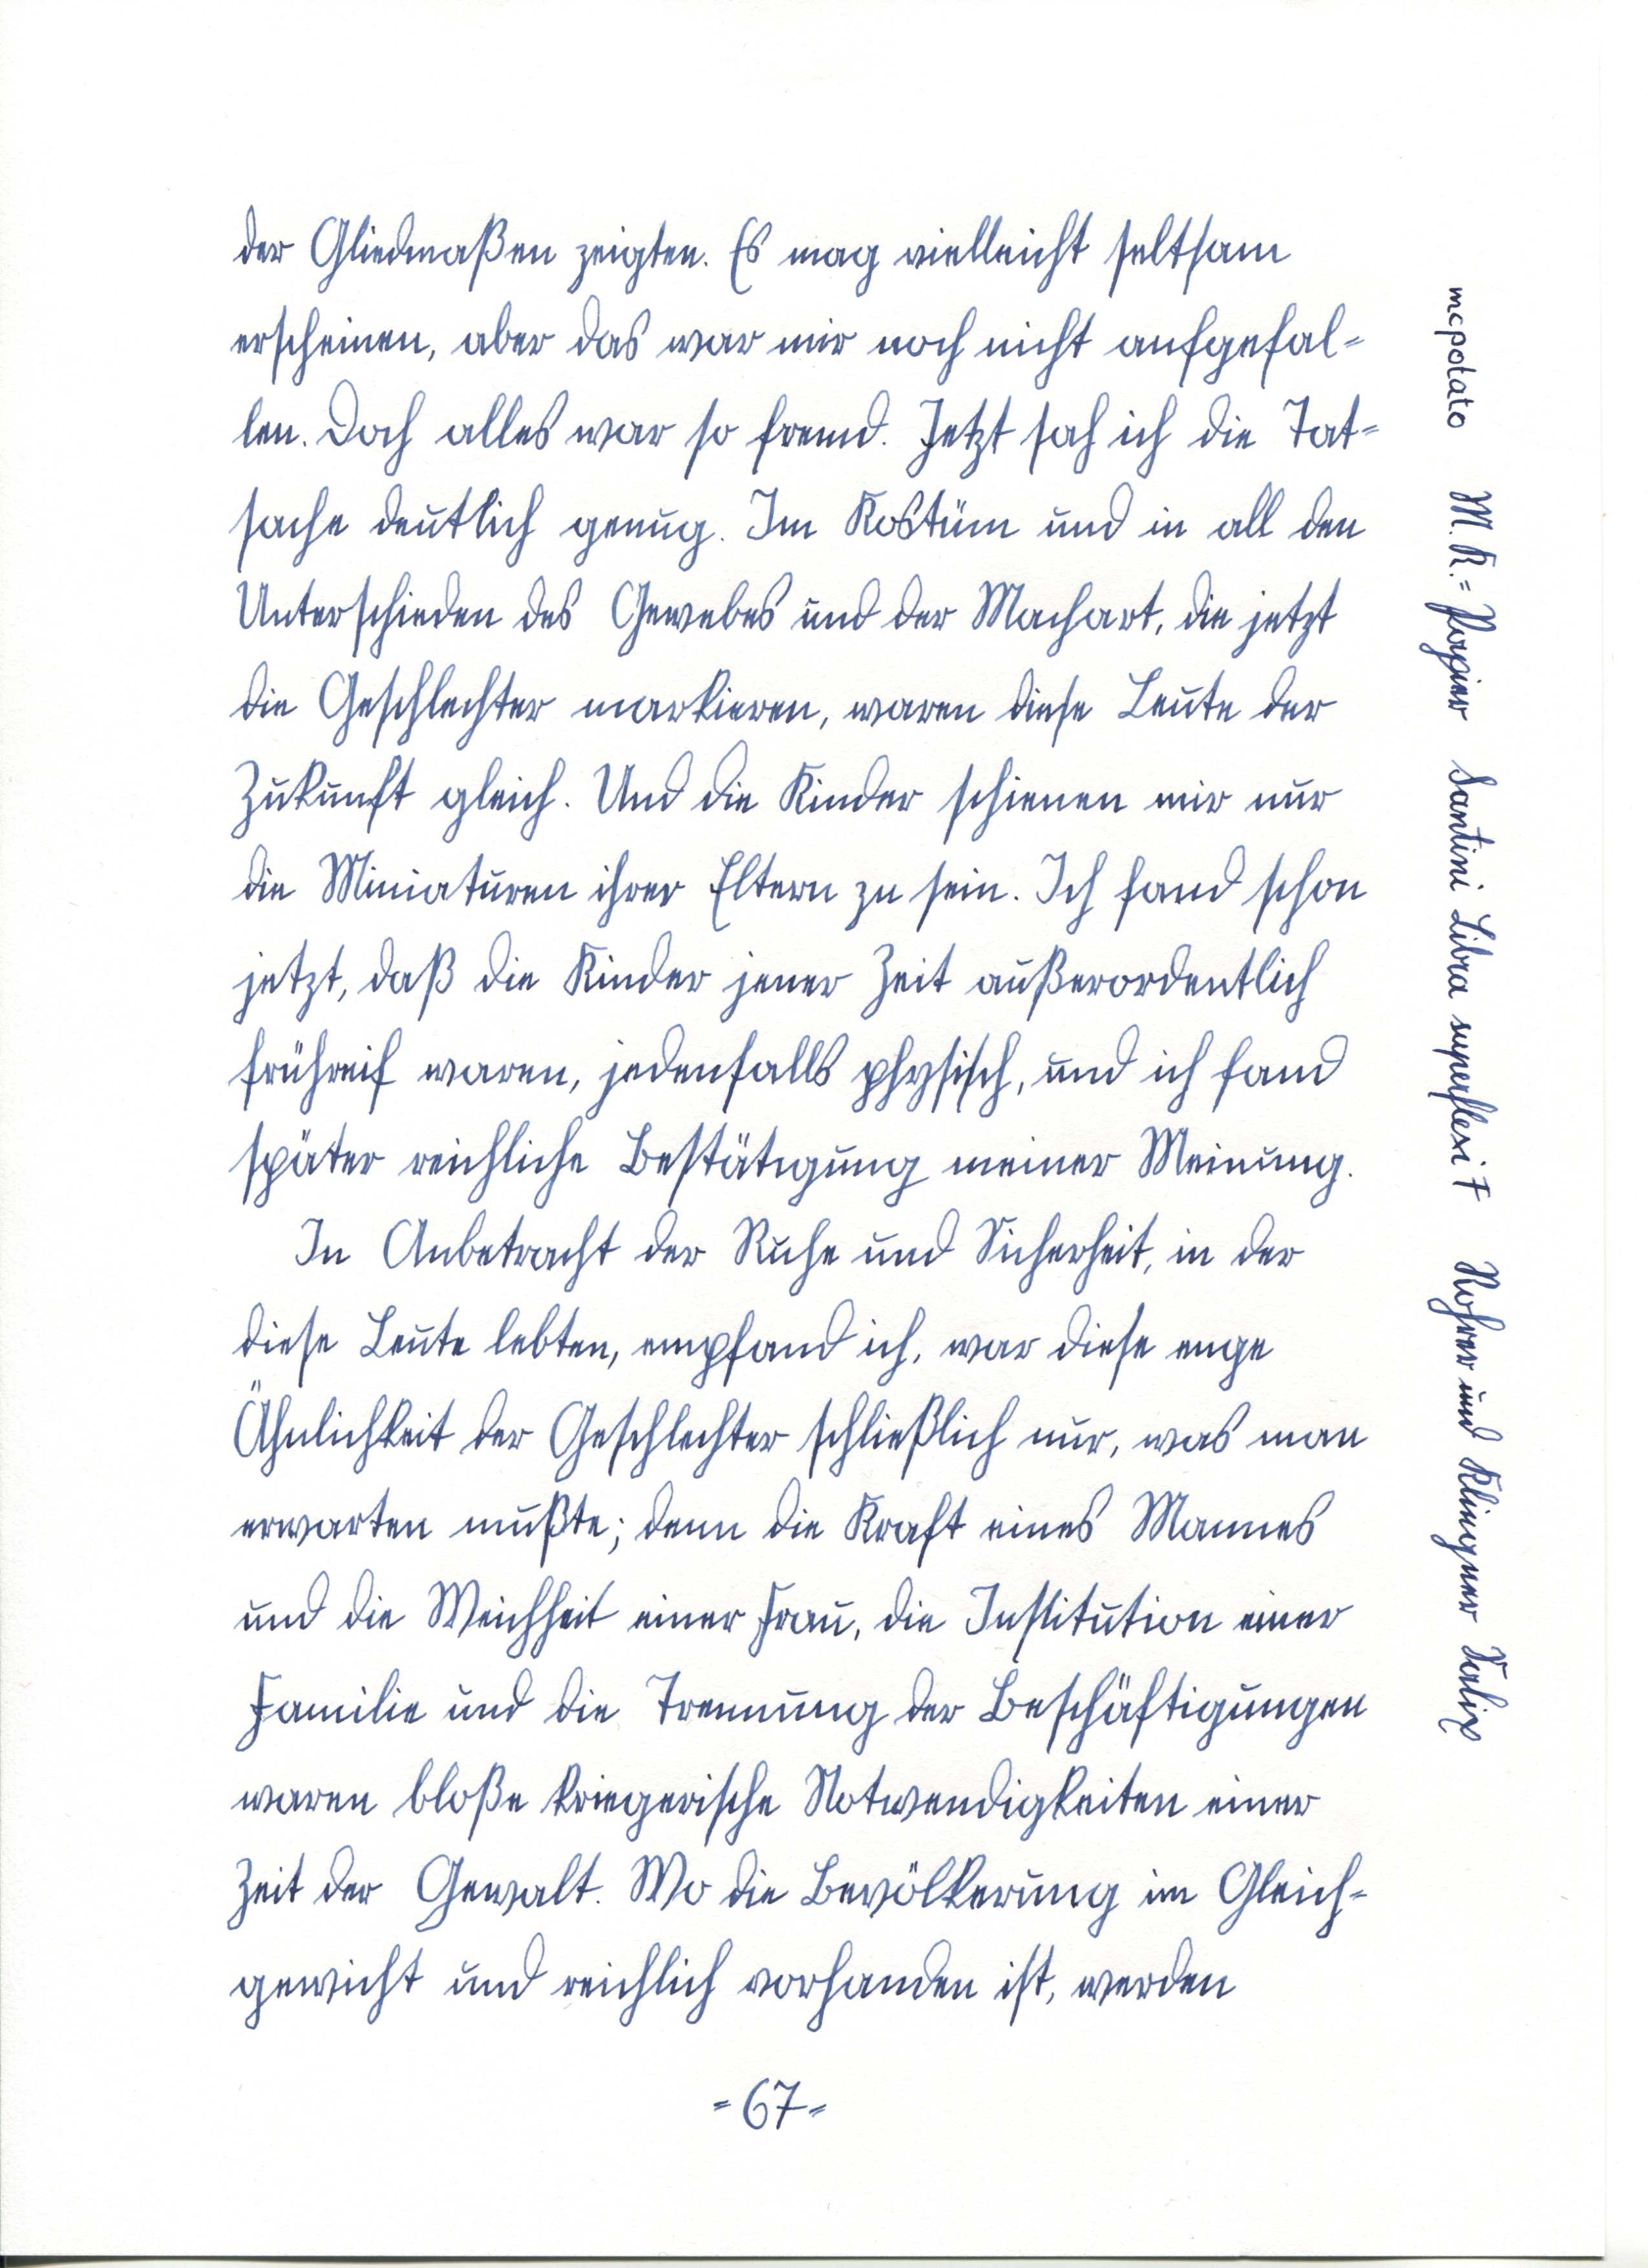 der Gliedmaßen zeigten. Es mag vielleicht seltsam
erscheinen, aber das war mir noch nicht aufgefal=
len. Doch alles war so fremd. Jetzt sah ich die Tat=
sache deutlich genug. Im Kostüm und in all den
Unterschieden des Gewebes und der Machart, die jetzt
die Geschlechter markieren, waren diese Leute der
Zukunft gleich. Und die Kinder schienen mir nur
die Miniaturen ihrer Eltern zu sein. Ich fand schon
jetzt, daß die Kinder jener Zeit außerordentlich
frühreif waren, jedenfalls physisch, und ich fand
später reichliche Bestätigung meiner Meinung.
In Anbetracht der Ruhe und Sicherheit, in der
diese Leute lebten, empfand ich, war diese enge
Ähnlichkeit der Geschlechter schließlich nur, was man
erwarten mußte; denn die Kraft eines Mannes
und die Weichheit einer Frau, die Institution einer
Familie und die Trennung der Beschäftigungen
waren bloße kriegerische Notwendigkeiten einer
Zeit der Gewalt. Wo die Bevölkerung im Gleich=
gewicht und reichlich vorhanden ist, werden
=67=
mcpotato M.K.=Papier Santini Libra superflexi F Rohrer und Klingner Salix